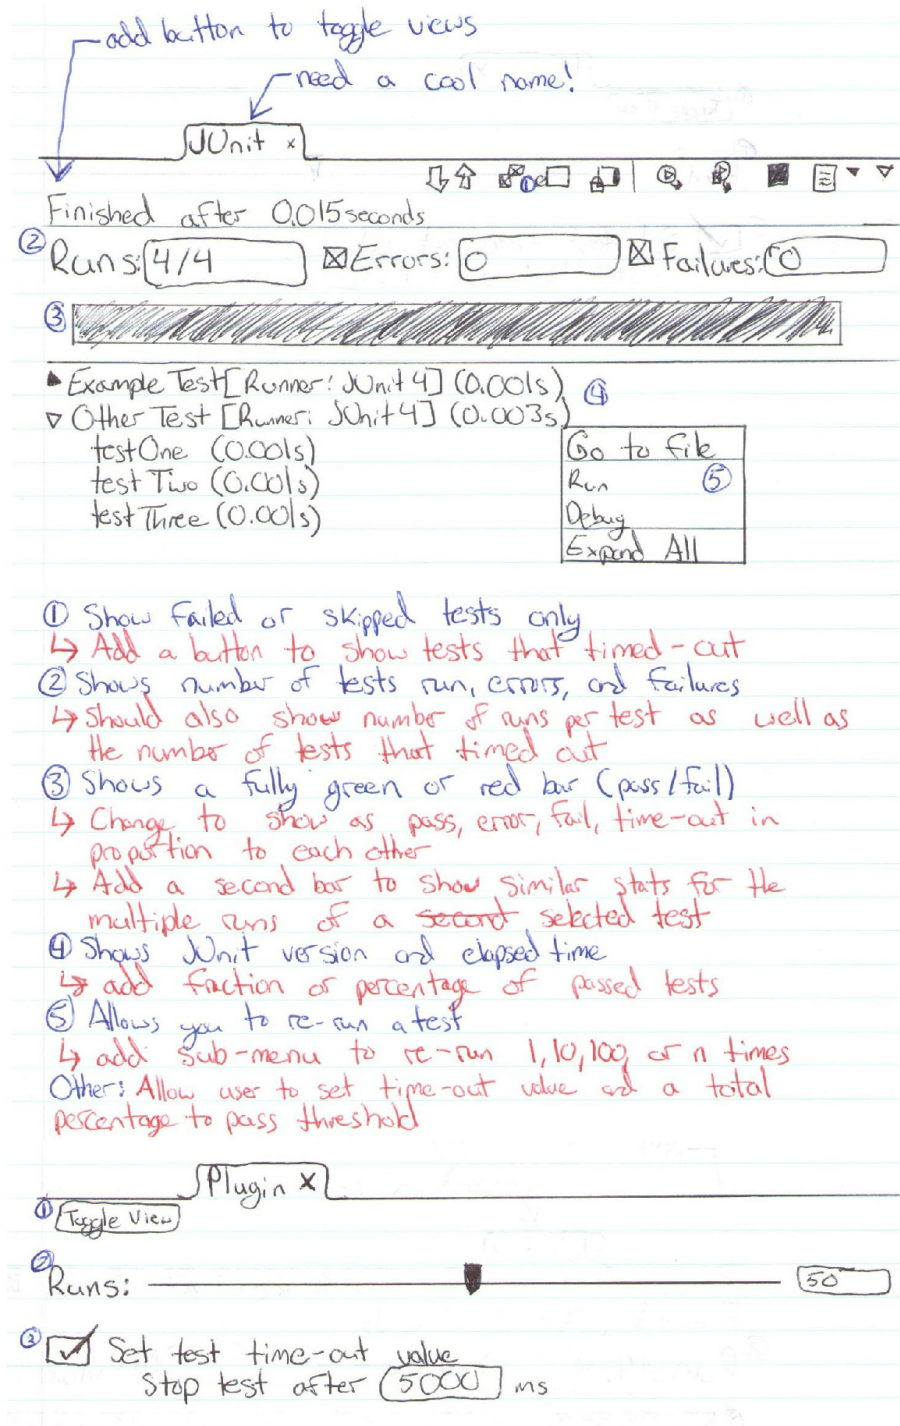 add button to toggle views
need a cool name!
JUnit x
Finished after 0.015 seconds
② Runs: 4/4 ☒ Errors: 0 ☒ Failures: 0
③
▶ Example Test [Runner: JUnit 4] (0.001s) ④
▽ Other Test [Runner: JUnit 4] (0.003s)
testOne (0.001s)
test Two (0.001s)
test Three (0.001s)
Go to file
Run ⑤
Debug
Expand All
① Show failed or skipped tests only
↳ Add a button to show tests that timed-out
② Shows number of tests run, errors, and failures
↳ Should also show number of runs per test as well as
the number of tests that timed out
③ Shows a fully green or red bar (pass/fail)
↳ Change to show as pass, error, fail, time-out in
proportion to each other
↳ Add a second bar to show similar stats for the
multiple runs of a second selected test
④ Shows JUnit version and elapsed time
↳ add fraction or percentage of passed tests
⑤ Allows you to re-run a test
↳ add sub-menu to re-run 1, 10, 100, or n times
Other: Allow user to set time-out value and a total
percentage to pass threshold
Plugin X
① Toggle View
② Runs: 50
③ ☑ Set test time-out value
Stop test after 5000 ms